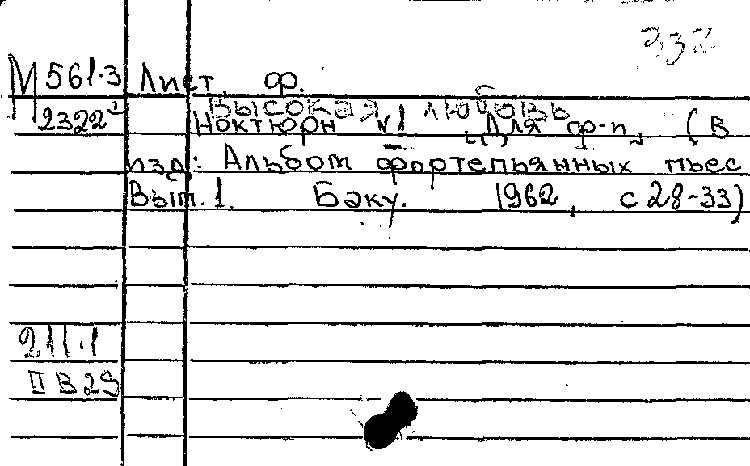 М 561.3 Лист, Ф.
2322 Высокая любовь
Ноктюрн №1 (Для ф-п.) (В
изд: Альбом фортепьянных пьес
Вып. 1. Баку. 1962, с 28-33)
2.11.1
II В 29